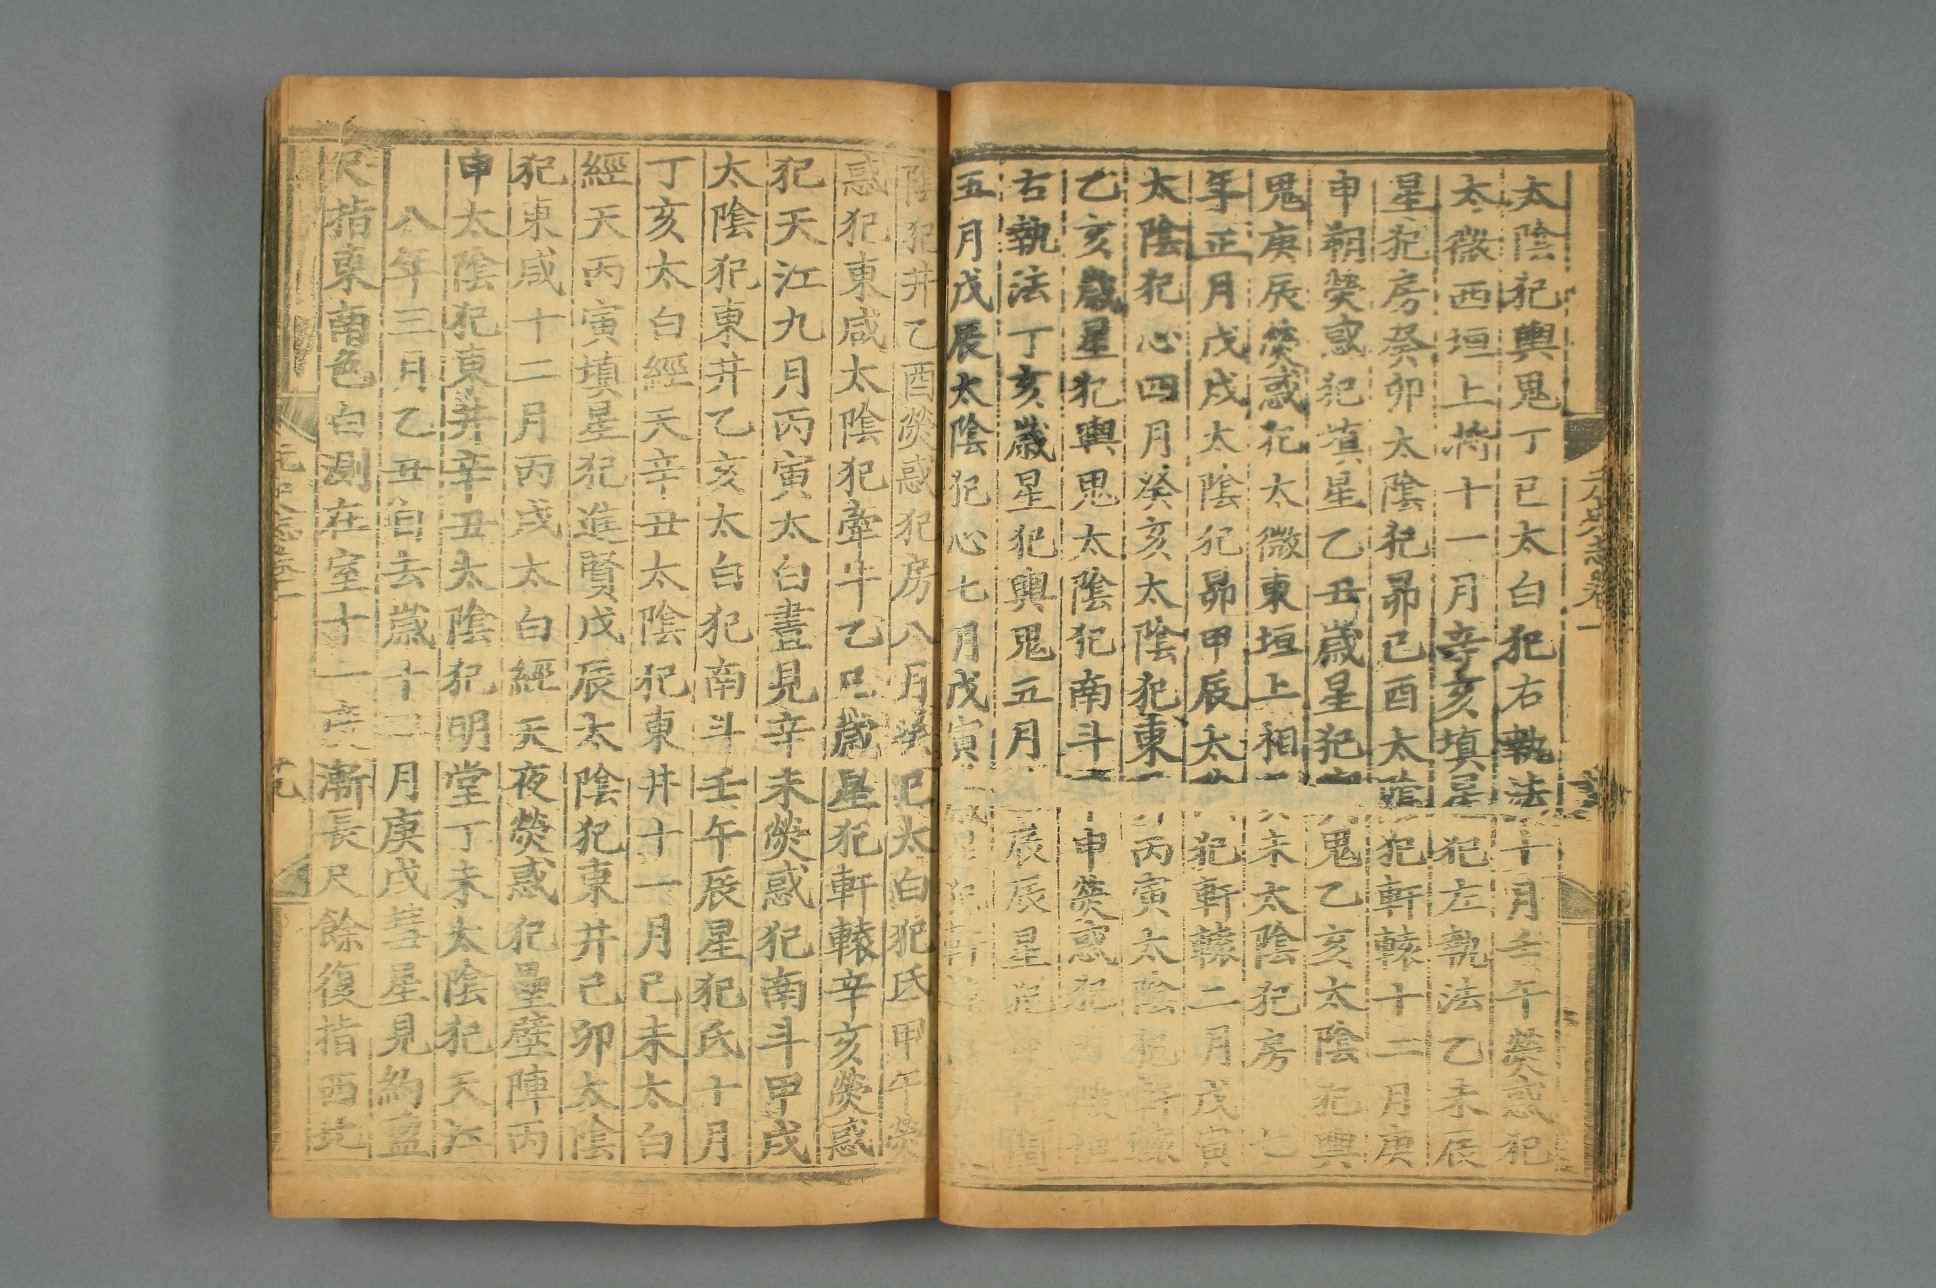 太陰犯輿鬼丁巳太白犯右執法十月壬午熒惑犯
太微西垣上將十一月辛亥填星犯左執法乙未辰
星犯房癸卯太陰犯昴己酉太陰犯軒轅十二月庚
申朔熒惑犯填星乙丑歲星犯輿鬼乙亥太陰犯輿
鬼庚辰熒惑犯太微東垣上相 未太陰犯房 七
年正月戊戌太陰犯昴甲辰太陰犯軒轅二月戊寅
太陰犯心四月癸亥太陰犯東井丙寅太陰犯軒轅
乙亥歲星犯輿鬼太陰犯南斗 申熒惑犯
右執法丁亥歲星犯輿鬼五月 辰辰星犯
五月戊辰太陰犯心七月戊寅
陰犯井乙酉熒惑犯房八月癸 犯太白犯氐甲午熒
惑犯東咸太陰犯牽牛乙巳歲星犯軒轅辛亥熒惑
犯天江九月丙寅太白晝見辛未熒惑犯南斗甲戌
太陰犯東井乙亥太白犯南斗壬午辰星犯氐十月
丁亥太白經天辛丑太陰犯東井十一月己未太白
經天丙寅填星犯進賢戊辰太陰犯東井己卯太陰
犯東咸十二月丙戌太白經天夜熒惑犯壘壁陣丙
申太陰犯東井辛丑太陰犯明堂丁未太陰犯天江
八年三月乙丑自去歲十二月庚戌彗星見約盈
尺指東南色白測在室十一度漸長尺餘復指西北
元史志卷一
元史志卷一
十九